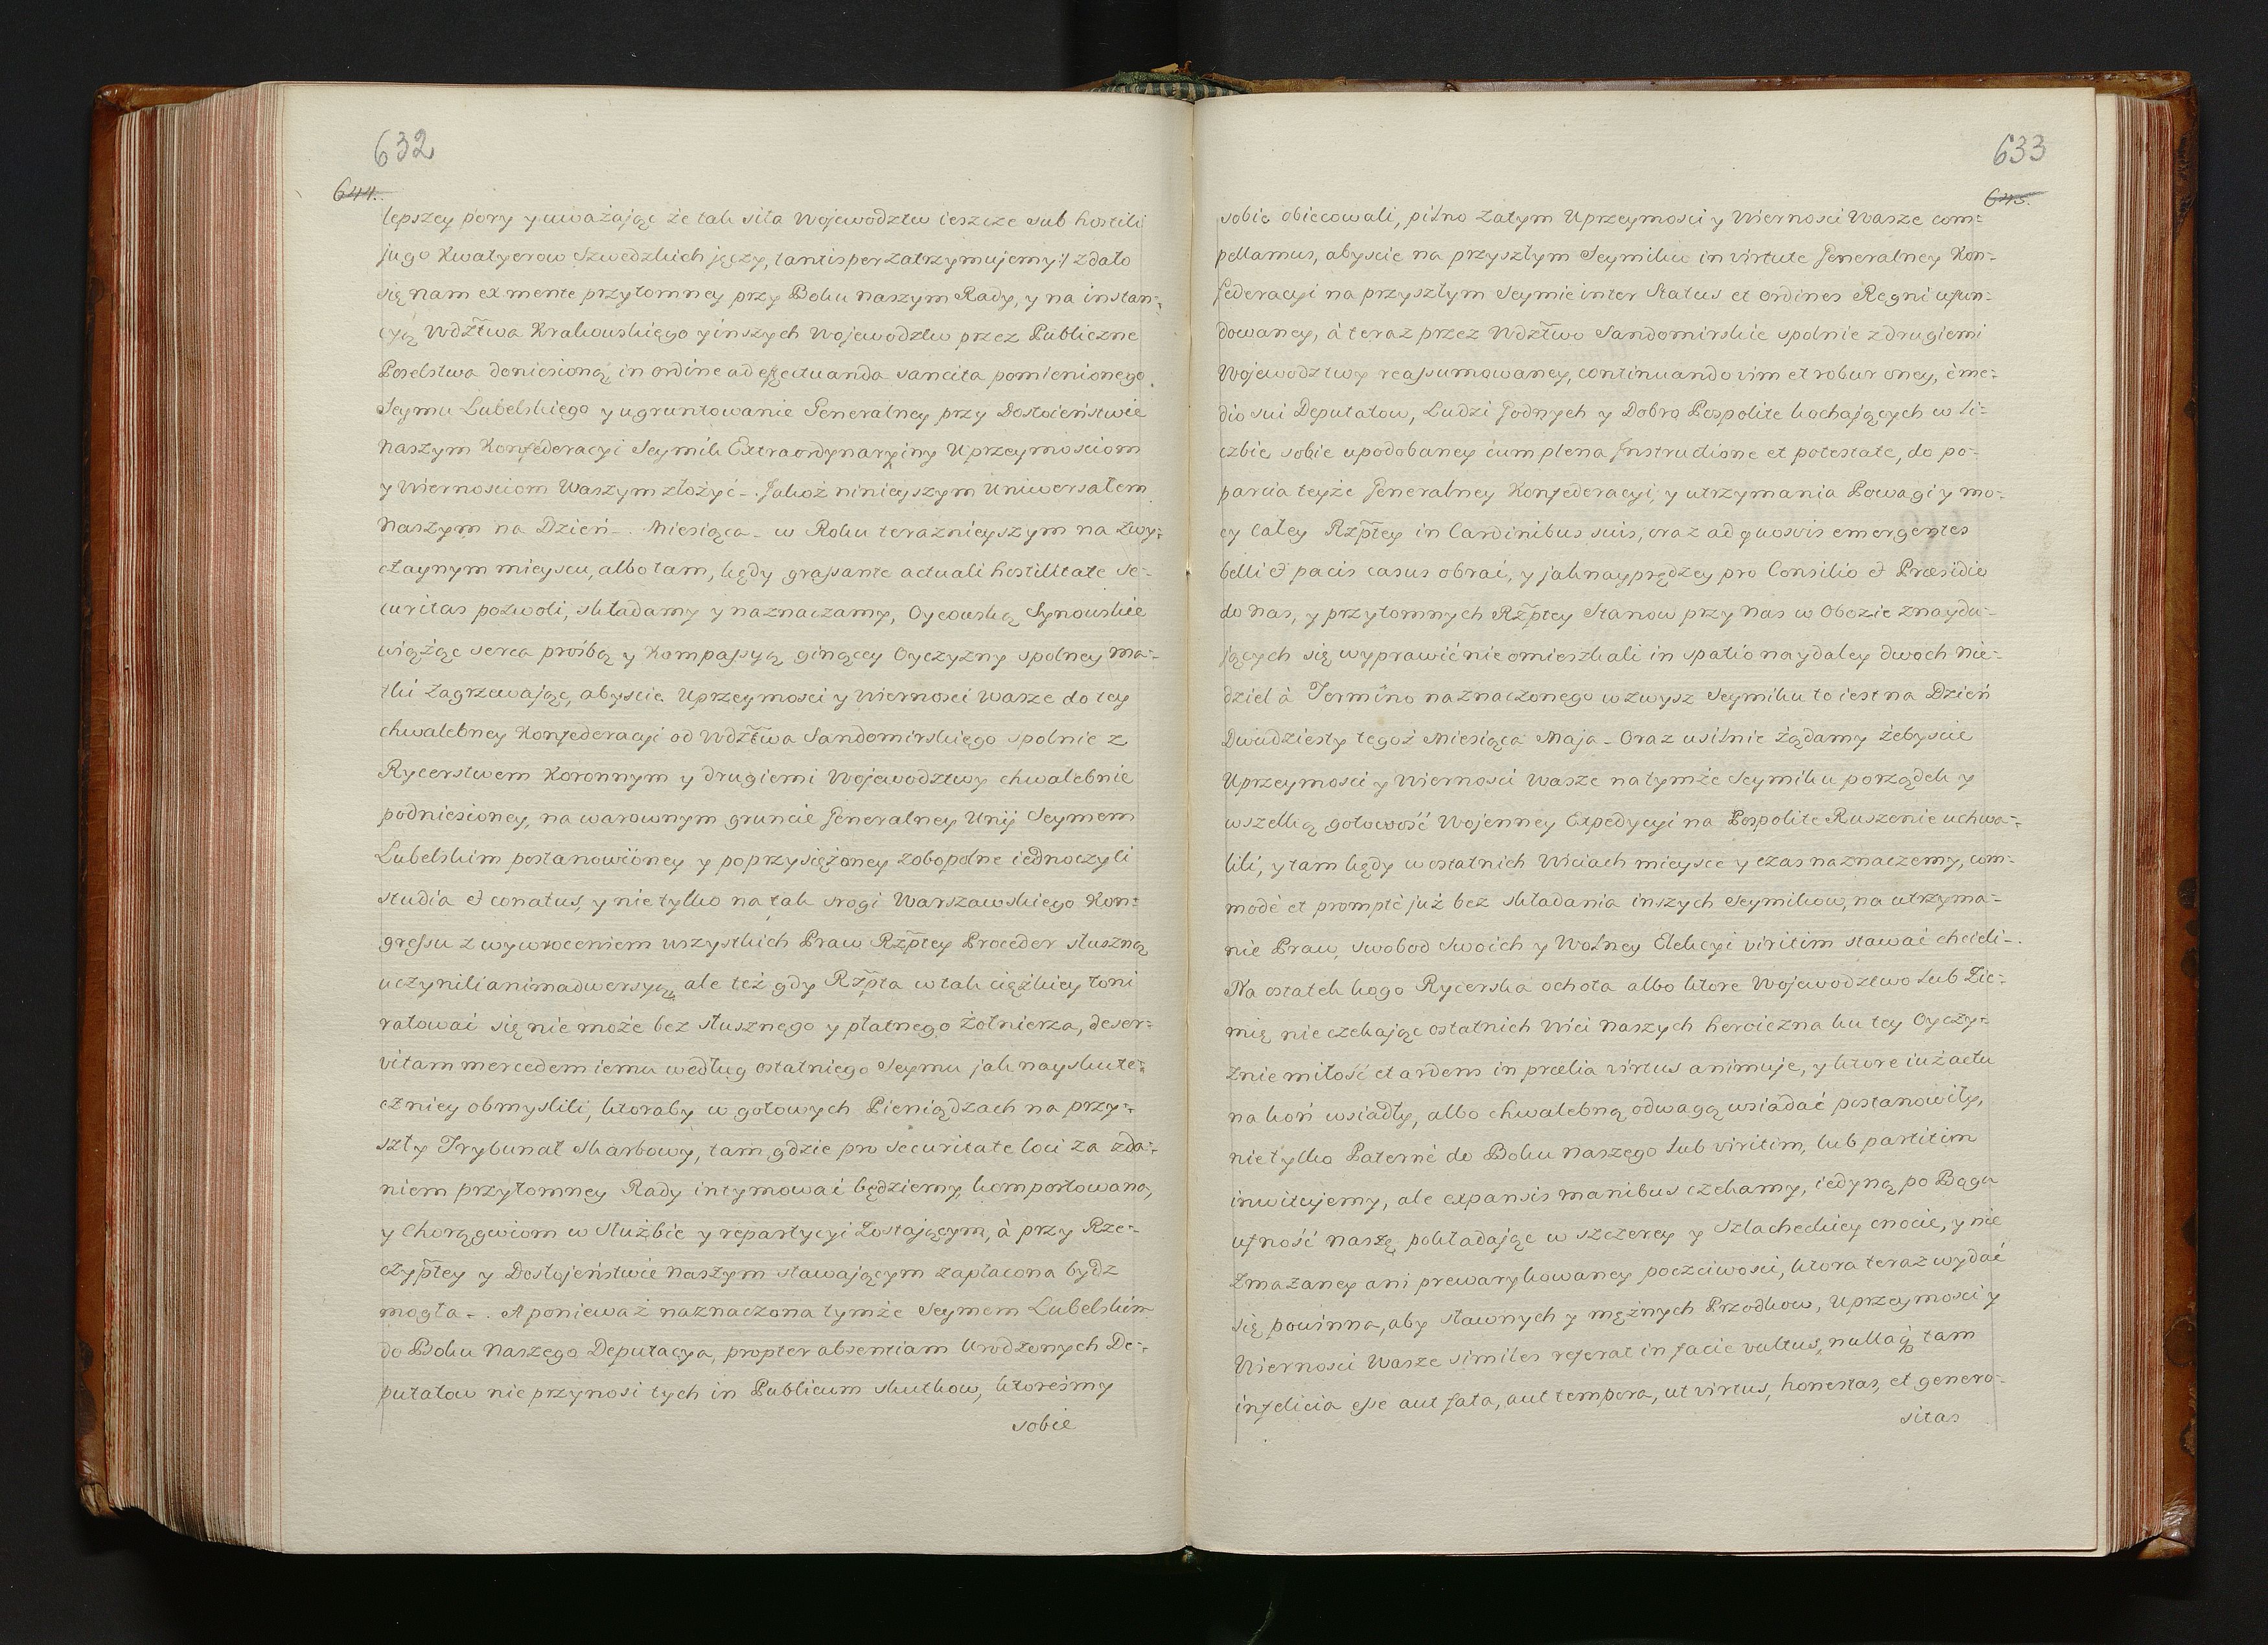 632
644.
lepszey pory y uważając że tak siła Wojewodztw ieszcze sub hostili
jugo Kwatyerow Szwedzkich jęczy, tantisper zatrzymujemy:/ zdało
się nam ex mente przytomney przy Boku naszym Rady, y na instan=
cyą Wdztwa Krakowskiego y inszych Wojewodztw przez Publiczne
Poselstwa doniesioną in ordine ad effectuanda sancita pomienionego
Seymu Lubelskiego y ugruntowanie Generalney przy Dostoieństwie
Naszym Konfederacyi Seymik Extraordynaryiny Uprzeymosciom
y Wiernosciom Waszym złożyć_. Jakoż ninieyszym Uniwersałem
Naszym na Dzień_. Miesiąca_ w Roku teraznieyszym na zwy=
czaynym mieyscu, albo tam, kędy grassante actuali hostilitate se=
curitas pozwoli, składamy y naznaczamy, Oycowską Synowskie
wiążąc serca proźbą y Kompassyą ginącey Oyczyzny spolney ma=
tki zagrzewając, abyscie Uprzeymosci y Wiernosci Wasze do tey
chwalebney Konfederacyi od Wdztwa Sandomirskiego spolnie z
Rycerstwem Koronnym y drugiemi Wojewodztwy chwalebnie
podniesioney, na warownym gruncie Generalney Unij Seymem
Lubelskim postanowioney y poprzysiężoney zobopolne iednoczyli
studia et conatus, y nie tylko na tak srogi Warszawskiego Kon=
gressu z wywroceniem wszystkich Praw Rzptey Proceder słuszną
uczynili animadwersyą, ale też gdy Rzpta w tak ciężkiey toni
ratować się nie może bez słusznego y płatnego żołnierza, deser=
vitam mercedem iemu według ostatniego Seymu jak nayskute=
czniey obmyslili, ktoraby w gotowych Pieniądzach na przy=
szły Trybunał Skarbowy, tam gdzie pro securitate loci za zda=
niem przytomney Rady intymować będziemy, komportowana,
y Chorągwiom w Służbie y repartycyi zostającym, à przy Rze=
czyptey y Dostojeństwie Naszym stawającym zapłacona bydz
mogła_. A ponieważ naznaczona tymże Seymem Lubelskim
do Boku Naszego Deputacya, propter absentiam Urodzonych De=
putatow nie przynosi tych in Publicum skutkow, ktoresmy
sobie
633
645.
sobie obiecowali, pilno zatym Uprzeymosci y Wiernosci Wasze com=
pellamus, abyscie na przyszłym Seymiku in virtute Generalney Kon=
federacyi na przyszłym Seymie inter Status et Ordines Regni ufun=
dowaney, à teraz przez Wdztwo Sandomirskie spolnie z drugiemi
Wojewodztwy reassumowaney, continuando vim et robur oney, è me=
dio sui Deputatow, Ludzi Godnych y Dobro Pospolite kochających w li=
czbie sobie upodobaney cum plena Instructione et potestate, do po=
parcia teyże Generalney Konfederacyi, y utrzymania Powagi y mo=
cy całey Rzptey in Cardinibus suis, oraz ad quosvis emergentes
belli et pacis casus obrać, y jak nayprędzey pro Consilio et Præsidio
do Nas, y przytomnych Rzptey Stanow przy Nas w Obozie znaydu=
jących się wyprawić nie omieszkali in spatio naydaley dwoch nie=
dziel à Termino naznaczonego wzwysz Seymiku to iest na Dzień
Dwudziesty tegoż Miesiąca Maja_ Oraz usilnie żądamy żebyscie
Uprzeymosci y Wiernosci Wasze na tymże Seymiku porządek y
wszelką gotowość Wojenney Expedycyi na Pospolite Ruszenie uchwa=
lili, y tam kędy w ostatnich Wiciach mieysce y czas naznaczemy, com=
modè et promptè już bez składania inszych Seymikow, na utrzyma=
nie Praw, swobod Swoich y Wolney Elekcyi viritim stawać chcieli_.
Na ostatek kogo Rycerska ochota albo ktore Wojewodztwo lub Zie=
mię nie czekając ostatnich Wici Naszych heroiczna ku tey Oyczy=
znie miłość et ardens in prælia virtus animuje, y ktore iuż actu
na koń wsiadły, albo chwalebną odwagą wsiadać postanowiły,
nie tylko Paternè do Boku Naszego lub viritim, lub partitim
inwitujemy, ale expansis manibus czekamy, iedyną po Bogu
ufność naszę pokładając w szczerey y Szlacheckiey cnocie, y nie
zmazaney ani prewarykowaney poczciwosci, ktora teraz wydać
się powinna, aby sławnych y mężnych Przodkow, Uprzeymosci y
Wiernosci Wasze similes referat in facie vultus, nullaq tam
infelicia esse aut fata, aut tempora, ut virtus, honestas, et genero=
sitas